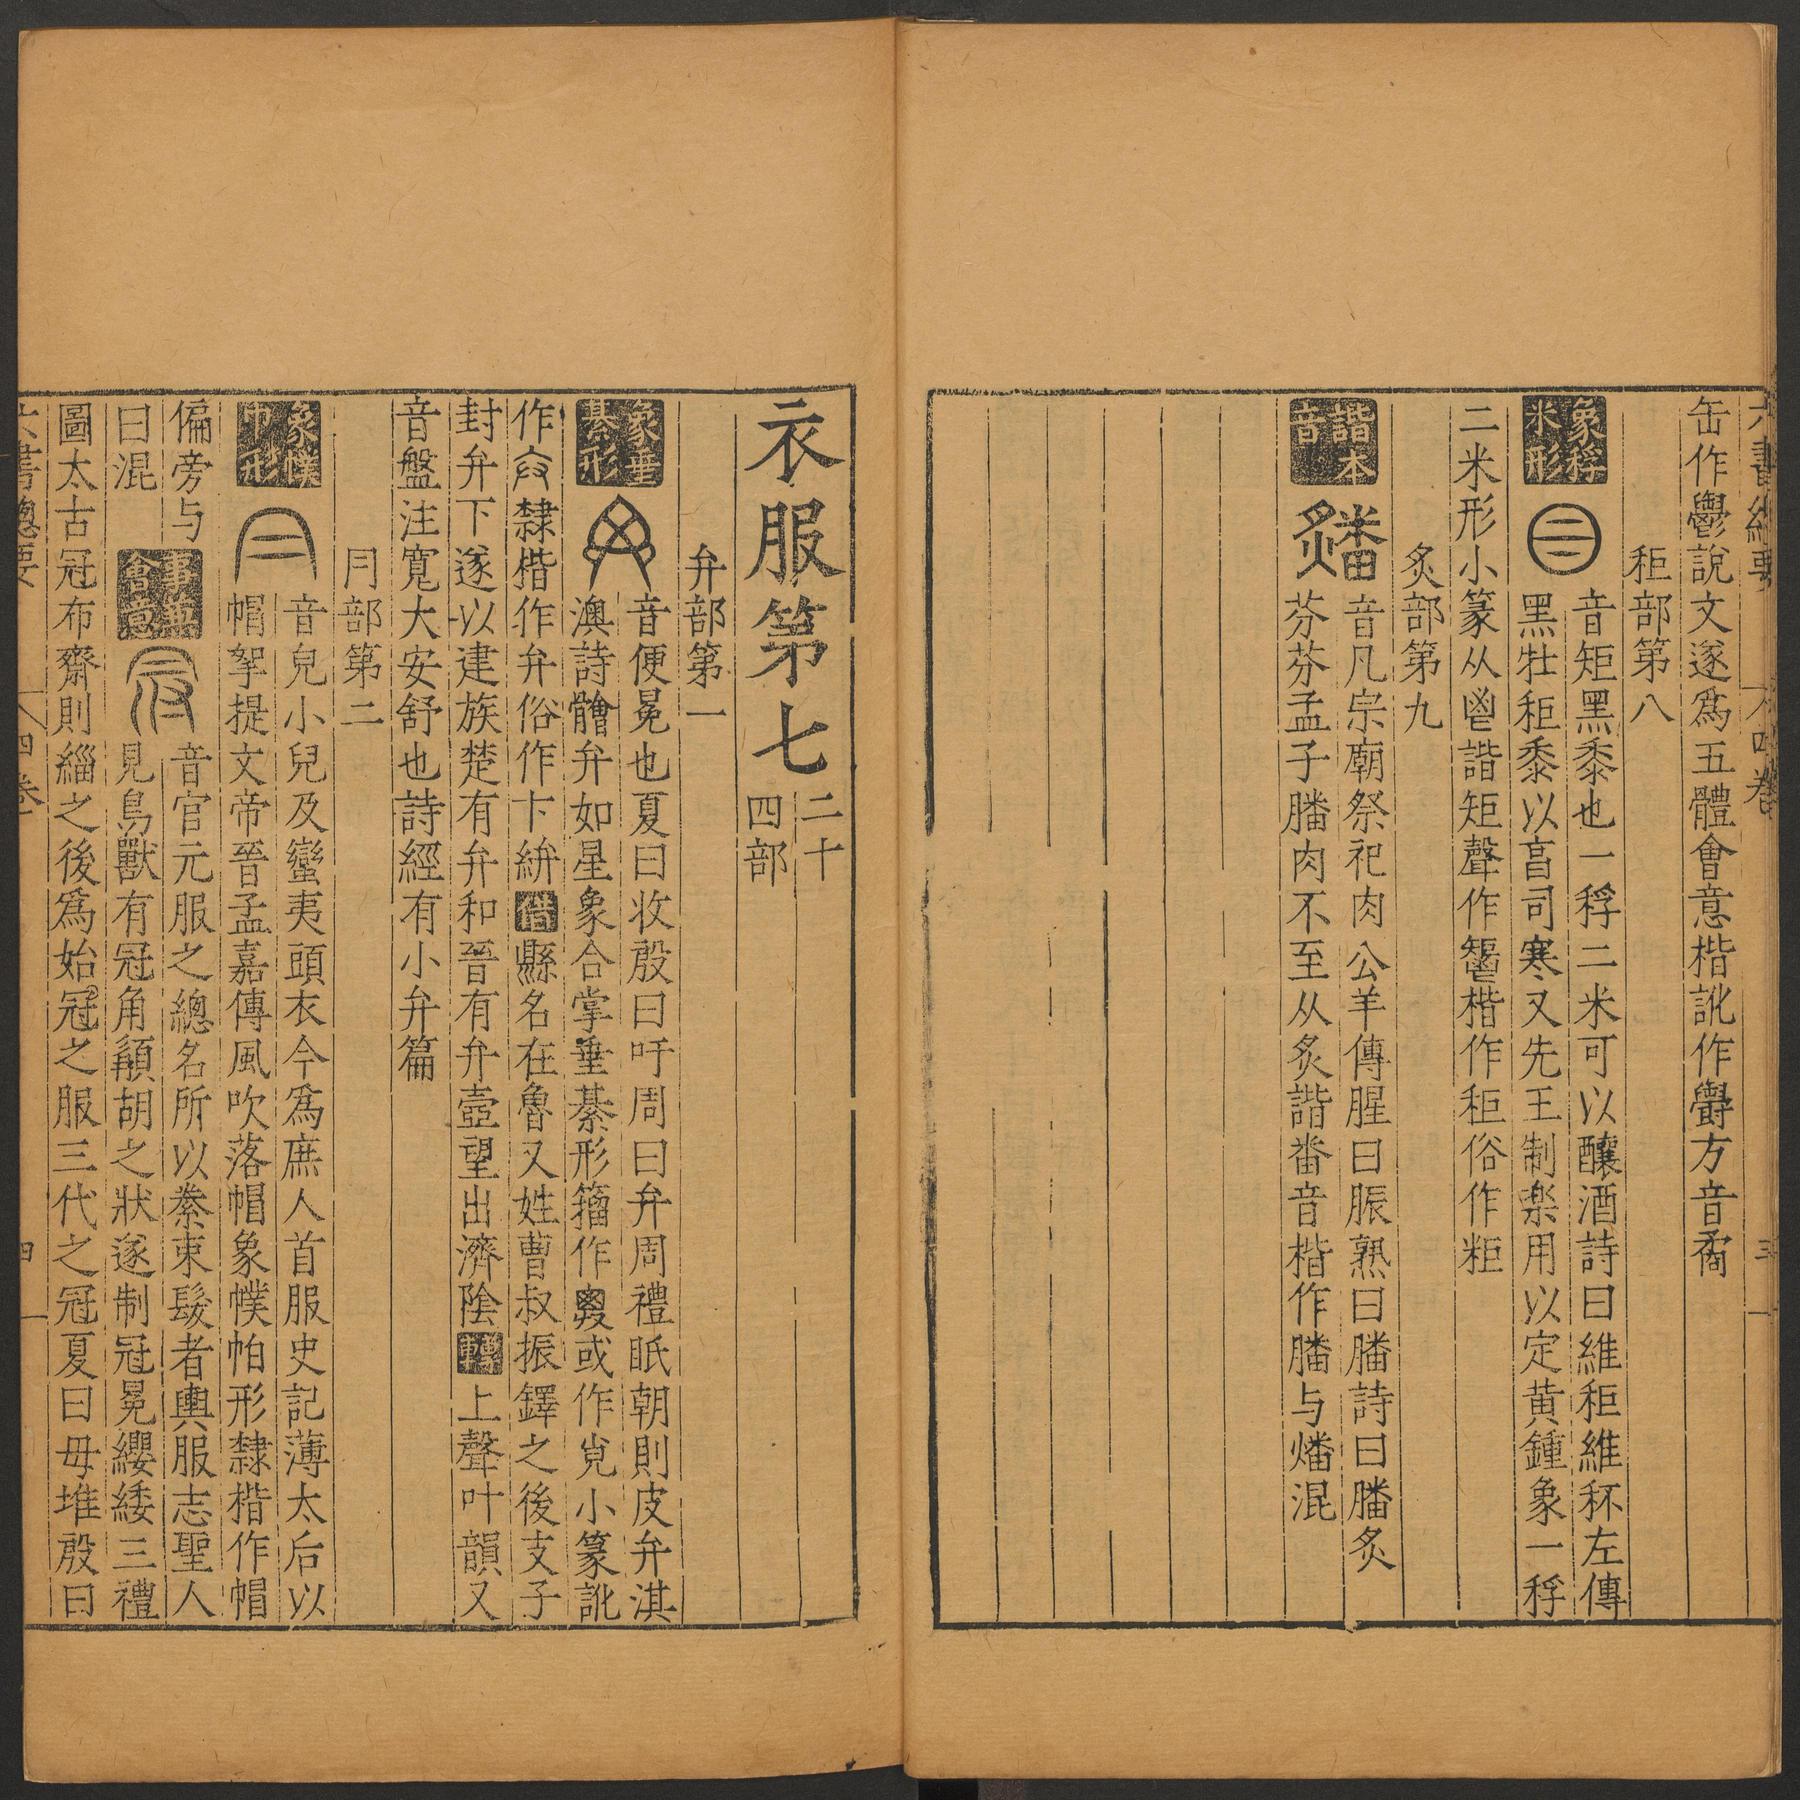 缶作鬱說文遂爲五體會意楷訛作欝方音矞
秬部第八
象稃米形
音矩黑黍也一稃二米可以釀酒詩曰維秬維秠左傳
黑牡秬黍以亯司寒又先王制樂用以定黃鍾象一稃
二米形小篆从鬯諧矩聲作𩰲楷作秬俗作粔
炙部第九
諧本音
音凡宗廟祭祀肉公羊傳腥曰脤熟曰膰詩曰膰炙
芬芬孟子膰肉不至从炙諧番音楷作膰与燔混
衣服第七
二十四部
弁部第一
象垂綦形
音便冕也夏曰收殷曰吁周曰弁周禮眂朝則皮弁淇
澳詩䯤弁如星象合掌垂綦形籀作𢍘或作覍小篆訛
作㝸隸楷作弁俗作卞絣借縣名在魯又姓曹叔振鐸之後支子
封弁下遂以建族楚有弁和晉有弁壺望出濟陰轉上聲叶韻又
音盤注寬大安舒也詩經有小弁篇
冃部第二
象幞巾形
音皃小兒及蠻夷頭衣今爲庶人首服史記薄太后以
帽挐提文帝晉孟嘉傳風吹落帽象幞帕形隸楷作帽
偏旁与
曰混
事兼會意
音官元服之總名所以絭束髮者輿服志聖人
見鳥獸有冠角䫇胡之狀遂制冠冕纓緌三禮
圖太古冠布齋則緇之後爲始冠之服三代之冠夏曰毋堆殷曰